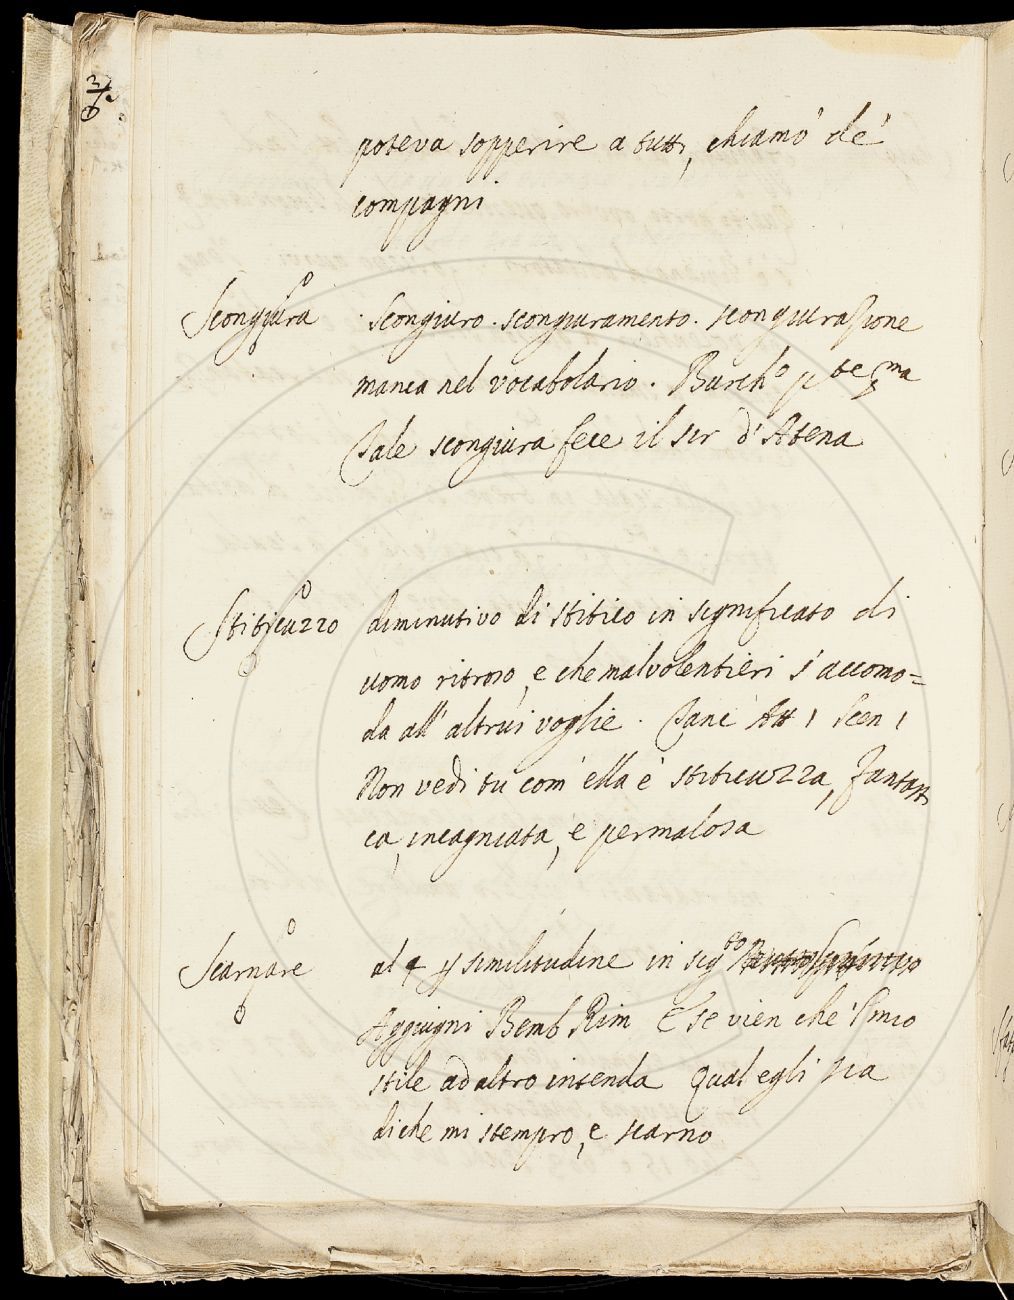 poteva sopperire a tutti, chiamò de'
compagni
Scongiura Scongiuro. scongiuramento. scongiurazione
manca nel vocabolario. Burch.º p.te
Tale scongiura fece il ser d'Atena
Stiticuzzo diminutivo di stitico in significato di
uomo ritroso, e che malvolentieri s'accomo=
da all'altrui voglie. Att 1 Scen 1
Non vedi tu com'ella è stiticuzza, fantasti
ca, incagnata, e permalosa
Scarnare al 4 p similitudine in sig.to
Aggiugni Bemb Rim E se vien che'l mio
stile ad altro intenda Qual egli sia
di che mi stempro, e scarno